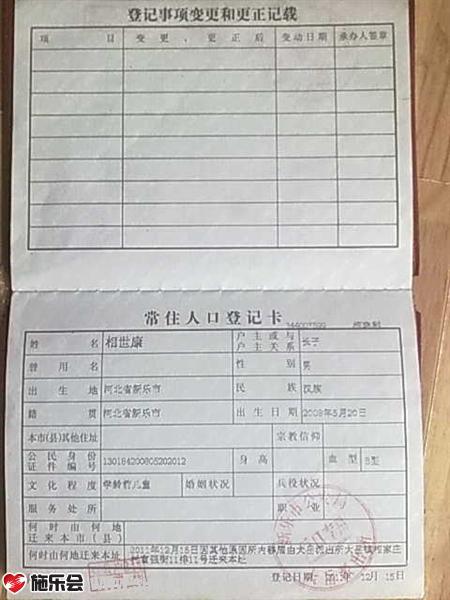 登记事项变更和更正记载
项 目 变更、更正后 变动日期 承办人签章
常住人口登记卡
姓名 相世康 户主或与户主关系 长子
曾用名 性别 男
出生地 河北省新乐市 民族 汉族
籍贯 河北省新乐市 出生日期 2008年5月20日
本市(县)其他住址 宗教信仰
公民身份证件编号 130184200805202012 身高 血型 B型
文化程度 学龄前儿童 婚姻状况 兵役状况
服务处所 职业
何时由何地迁来本市(县)
何时由何地迁来本址 2011年12月15日因其他原因所内移居由大岳派出所大岳镇相家庄
村富强街11排11号迁来本址
登记日期: 12月15日
施乐会